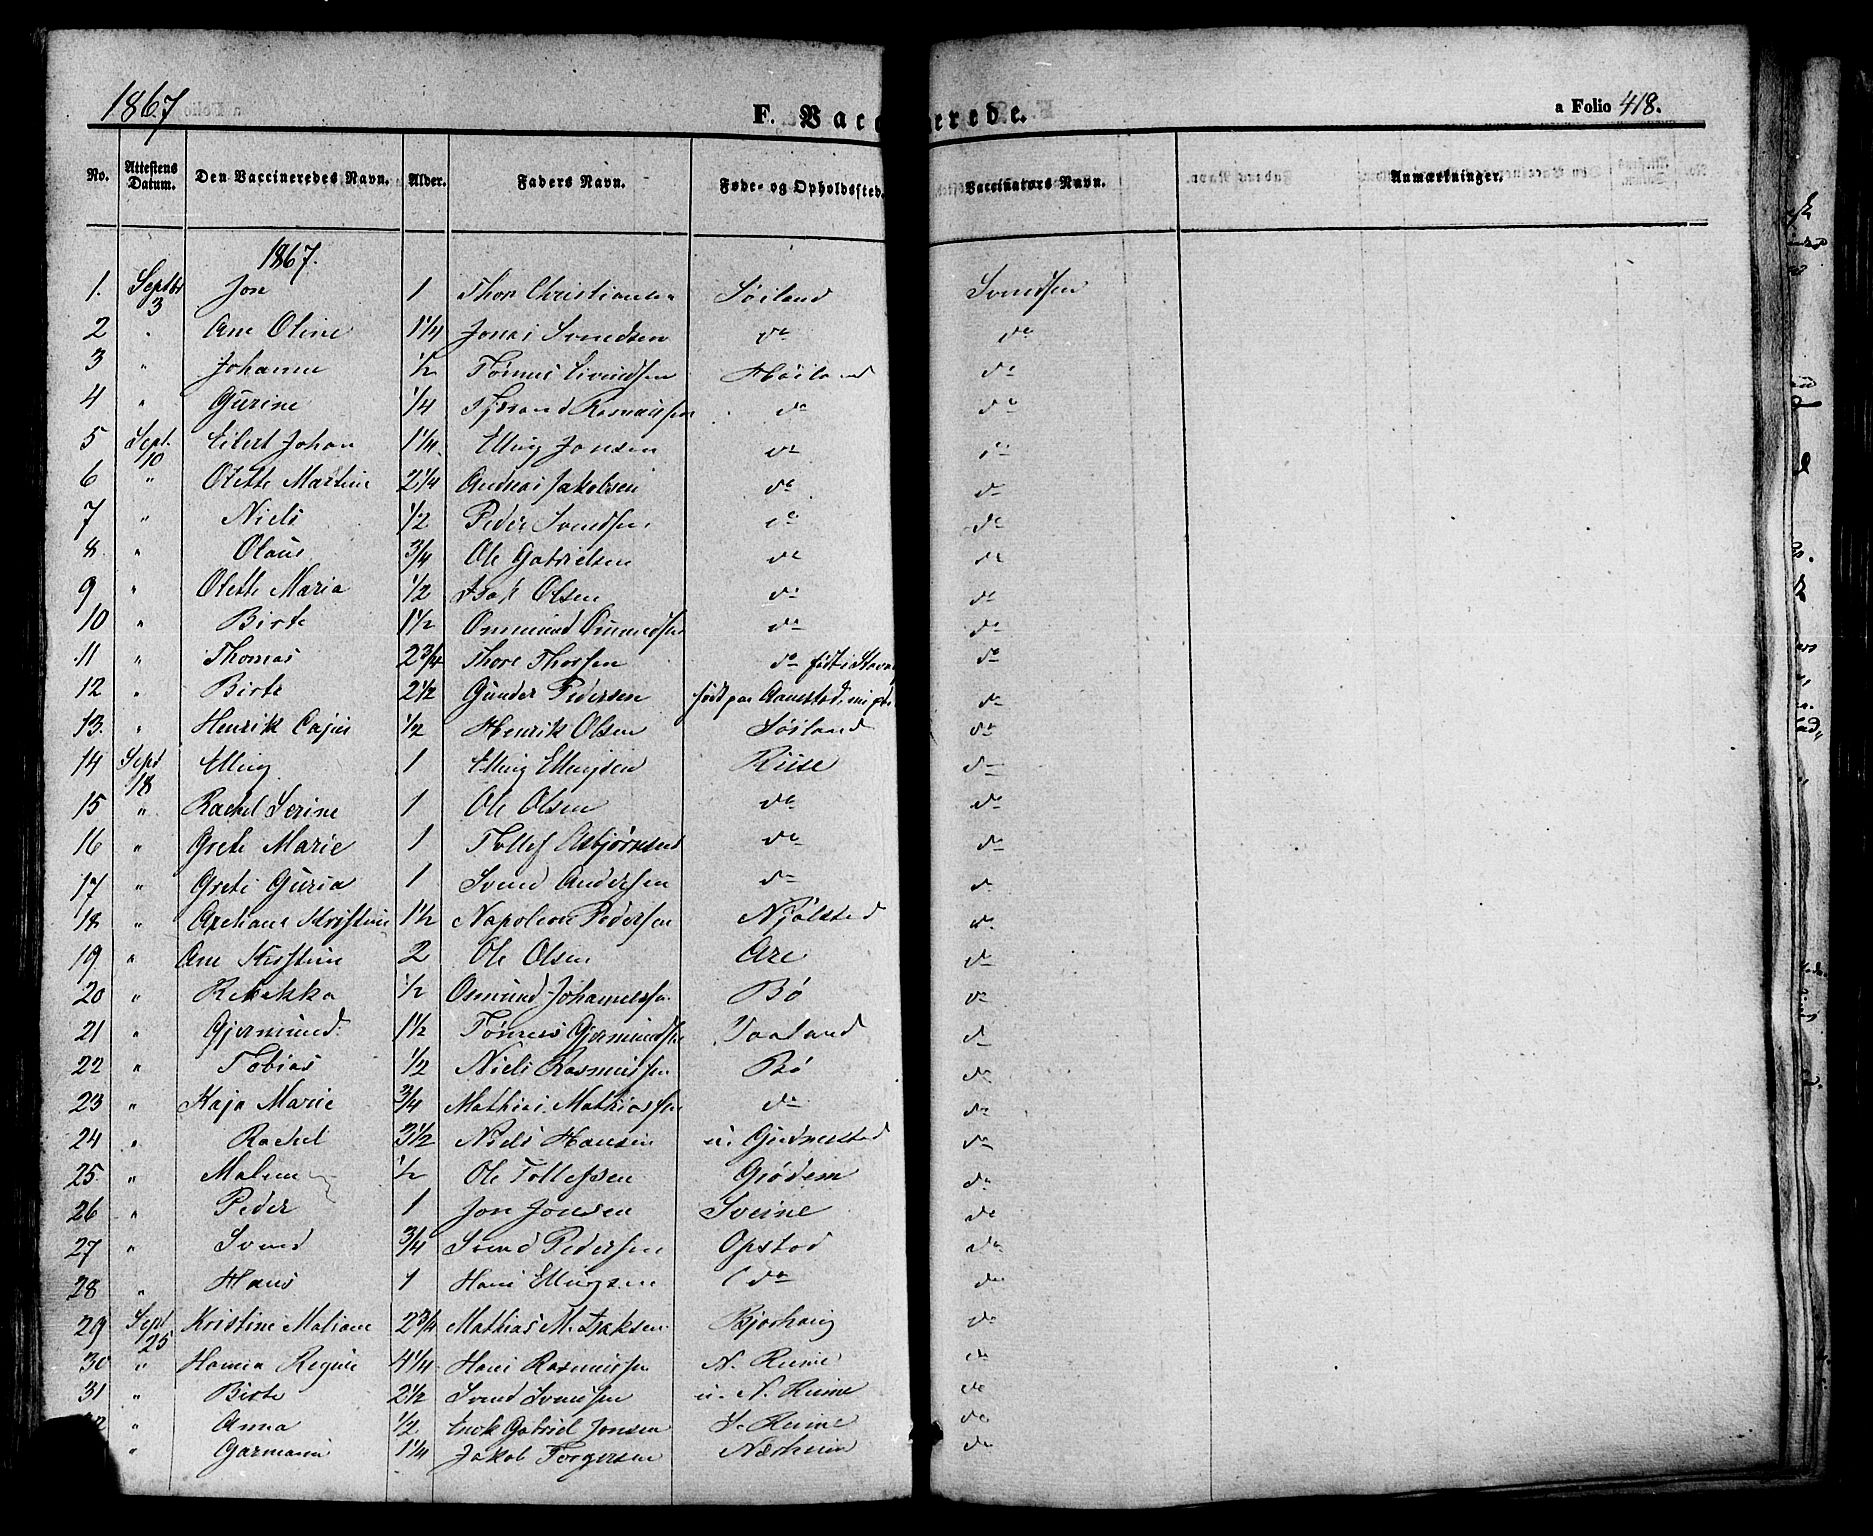 1867 F. Vacc erede. a Folio 418.
No. Attestens Datum. Den Vaccineredes Navn. Alder. Faders Navn. Føde- og Opholdssted. Vaccinators Navn. Anmærkninger.
1867.
1. Septbr 3 Jon 1 Thore Christiansen Søiland Svendsen
2 " Ane Oline 1 1/4 Jonas Svendsen do do
3 " Johanne 1/2 Tønnes Svendsen Høiland do
4 " Gurine 1/4 Rasmussen do do
5 Sept. 10 Eilert Johan 1 1/4 Elling Jonsen do do
6 " Olette Martine 2 1/4 Andreas Jakobsen do do
7 " Niels 1/2 Peder Svendsen do do
8 " Olaus 3/4 Ole Gabrielsen do do
9 " Olette Maria 1/2 Isak Olsen do do
10 " Birte 1 1/2 Osmund Osmundsen do do
11 " Thomas 2 3/4 Thore Thorsen do født i Stavang do
12 " Birte 2 1/2 Gunder Pedersen født paa Aanestad do
13. " Henrik Cajus 1/2 Henrik Olsen Søiland do
14 Sept 18 Elling 1 Elling Ellingsen Riise do
15 " Rachel Serine 1 Ole Olsen do do
16 " Grete Marie 1 Tollef Asbjørnsen do do
17 " Grete Guria 1 Svend Andersen do do
18 " Kristine 1 1/2 Napoleon Pedersen Njølstad do
19 " Ane Kirstine 2 Ole Olsen Are do
20 " Rebekka 1/2 Osmund Johannessen Bø do
21 " Gjermund 1 1/2 Tønnes Gjermundsen Taaland do
22 " Tobias 1/2 Niels Rasmussen Bø do
23 " Kaja Marie 3/4 Mathias Mathiassen do do
24 " Rachel 3 1/2 Niels Hansen u. Gudmestad do
25. " Malene 1/2 Ole Tollefsen Grødem do
26 " Peder 1 Jon Jonsen Sveine do
27 " Svend 3/4 Svend Pedersen Opstad do
28 " Hans 1 Hans Ellingsen do do
29 Sept 25 Kristine Maliane 2 3/4 Mathias M. Isaksen Bjorhaug do
30 " Hanna Regine 4 1/4 Hans Rasmussen N. Reime do
31 " Birte 2 1/2 Svend Svendsen u. N. Reime do
" Anna 1/2 Enok Gabriel Jonsen S. Reime do
" Garmann 1 1/4 Jakob Torgersen Nærheim do